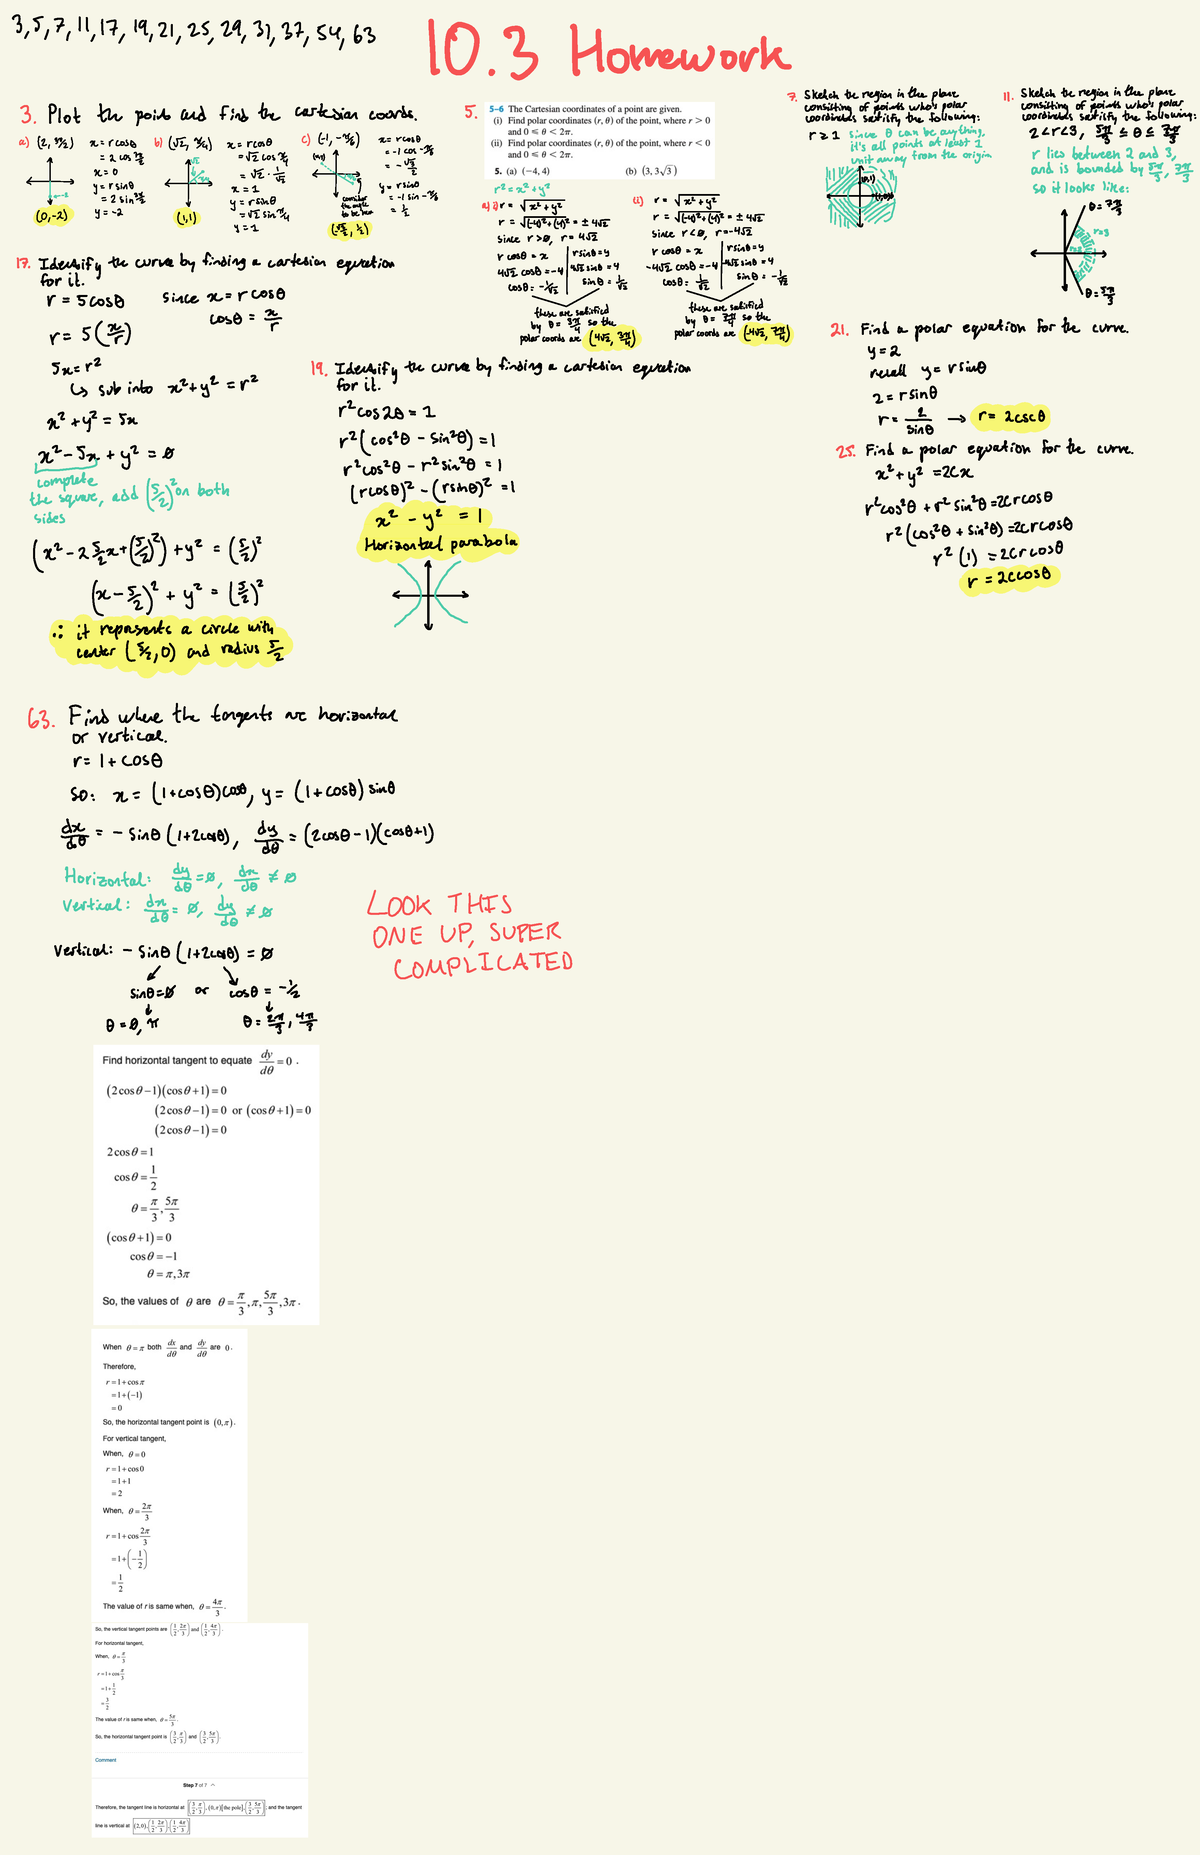 3,5,7,11,17,19,21,25,29,31,37,54,63
10.3 Homework
3. Plot the point and find the cartesian coords.
a) (2, 3π/2)
x = r cosθ
= 2 cos 3π/2
x = 0
y = r sinθ
= 2 sin 3π/2
y = -2
(0,-2)
b) (√2, π/4)
x = r cosθ
= √2 cos π/4
= √2 · 1/√2
x = 1
y = r sinθ
= √2 sin π/4
y = 1
(1,1)
c) (-1, -π/6)
x = r cosθ
= -1 cos -π/6
= -√3/2
y = r sinθ
= -1 sin -π/6
= 1/2
consider
the angle
to be here
(-√3/2, 1/2)
5.
5–6 The Cartesian coordinates of a point are given.
(i) Find polar coordinates (r, θ) of the point, where r > 0
and 0 ≤ θ < 2π.
(ii) Find polar coordinates (r, θ) of the point, where r < 0
and 0 ≤ θ < 2π.
5. (a) (−4, 4) (b) (3, 3√3)
r² = x² + y²
a) i) r = √x² + y²
r = √(-4)² + (4)² = ± 4√2
since r > 0, r = 4√2
r cosθ = x
4√2 cosθ = -4
cosθ = -1/√2
r sinθ = y
4√2 sinθ = 4
sinθ = 1/√2
these are satisfied
by θ = 3π/4 so the
polar coords are (4√2, 3π/4)
ii) r = √x² + y²
r = √(-4)² + (4)² = ± 4√2
since r < 0, r = -4√2
r cosθ = x
-4√2 cosθ = -4
cosθ = 1/√2
r sinθ = y
-4√2 sinθ = 4
sinθ = -1/√2
these are satisfied
by θ = 7π/4 so the
polar coords are (-4√2, 7π/4)
7. Sketch the region in the plane
consisting of points who's polar
coordinates satisfy the following:
r ≥ 1 since θ can be anything,
it's all points at least 1
unit away from the origin
11. Sketch the region in the plane
consisting of points who's polar
coordinates satisfy the following:
2 < r < 3, 5π/3 ≤ θ ≤ 7π/3
r lies between 2 and 3,
and is bounded by 5π/3, 7π/3
so it looks like:
θ = 7π/3
r=3
θ = 5π/3
17. Identify the curve by finding a cartesian equation
for it.
r = 5cosθ since x = r cosθ
cosθ = x/r
r = 5(x/r)
5x = r²
↳ sub into x² + y² = r²
x² + y² = 5x
x² - 5x + y² = 0
complete
the square, add (5/2)² on both
sides
(x² - 2 5/2 x + (5/2)²) + y² = (5/2)²
(x - 5/2)² + y² = (5/2)²
∴ it represents a circle with
center (5/2, 0) and radius 5/2
19. Identify the curve by finding a cartesian equation
for it.
r² cos2θ = 1
r² (cos²θ - sin²θ) = 1
r² cos²θ - r² sin²θ = 1
(r cosθ)² - (r sinθ)² = 1
x² - y² = 1
Horizontal parabola
21. Find a polar equation for the curve.
y = 2
recall y = r sinθ
2 = r sinθ
r = 2/sinθ → r = 2cscθ
25. Find a polar equation for the curve.
x² + y² = 2cx
r² cos²θ + r² sin²θ = 2cr cosθ
r² (cos²θ + sin²θ) = 2cr cosθ
r² (1) = 2cr cosθ
r = 2ccosθ
63. Find where the tangents are horizontal
or vertical.
r = 1 + cosθ
so: x = (1+cosθ)cosθ, y = (1+cosθ) sinθ
dx/dθ = - sinθ (1+2cosθ), dy/dθ = (2cosθ - 1)(cosθ+1)
Horizontal: dy/dθ = 0, dx/dθ ≠ 0
Vertical: dx/dθ = 0, dy/dθ ≠ 0
LOOK THIS
ONE UP, SUPER
COMPLICATED
Vertical: - sinθ (1+2cosθ) = 0
sinθ = 0 or cosθ = -1/2
θ = 0, π θ = 2π/3, 4π/3
Find horizontal tangent to equate dy/dθ = 0 .
(2cosθ−1)(cosθ+1) = 0
(2cosθ−1) = 0 or (cosθ+1) = 0
(2cosθ−1) = 0
2cosθ = 1
cosθ = 1/2
θ = π/3, 5π/3
(cosθ+1) = 0
cosθ = −1
θ = π, 3π
So, the values of θ are θ = π/3, π, 5π/3, 3π .
When θ = π both dx/dθ and dy/dθ are 0 .
Therefore,
r = 1+cosπ
= 1+(−1)
= 0
So, the horizontal tangent point is (0, π) .
For vertical tangent,
When, θ = 0
r = 1+cos0
= 1+1
= 2
When, θ = 2π/3
r = 1+cos 2π/3
= 1+(−1/2)
= 1/2
The value of r is same when, θ = 4π/3 .
So, the vertical tangent points are (1/2, 2π/3) and (1/2, 4π/3) .
For horizontal tangent,
When, θ = π/3
r = 1+cos π/3
= 1+1/2
= 3/2
The value of r is same when, θ = 5π/3 .
So, the horizontal tangent point is (3/2, π/3) and (3/2, 5π/3) .
Comment
Step 7 of 7
Therefore, the tangent line is horizontal at (3/2, π/3), (0, π)[the pole], (3/2, 5π/3) ; and the tangent
line is vertical at (2,0), (1/2, 2π/3), (1/2, 4π/3)